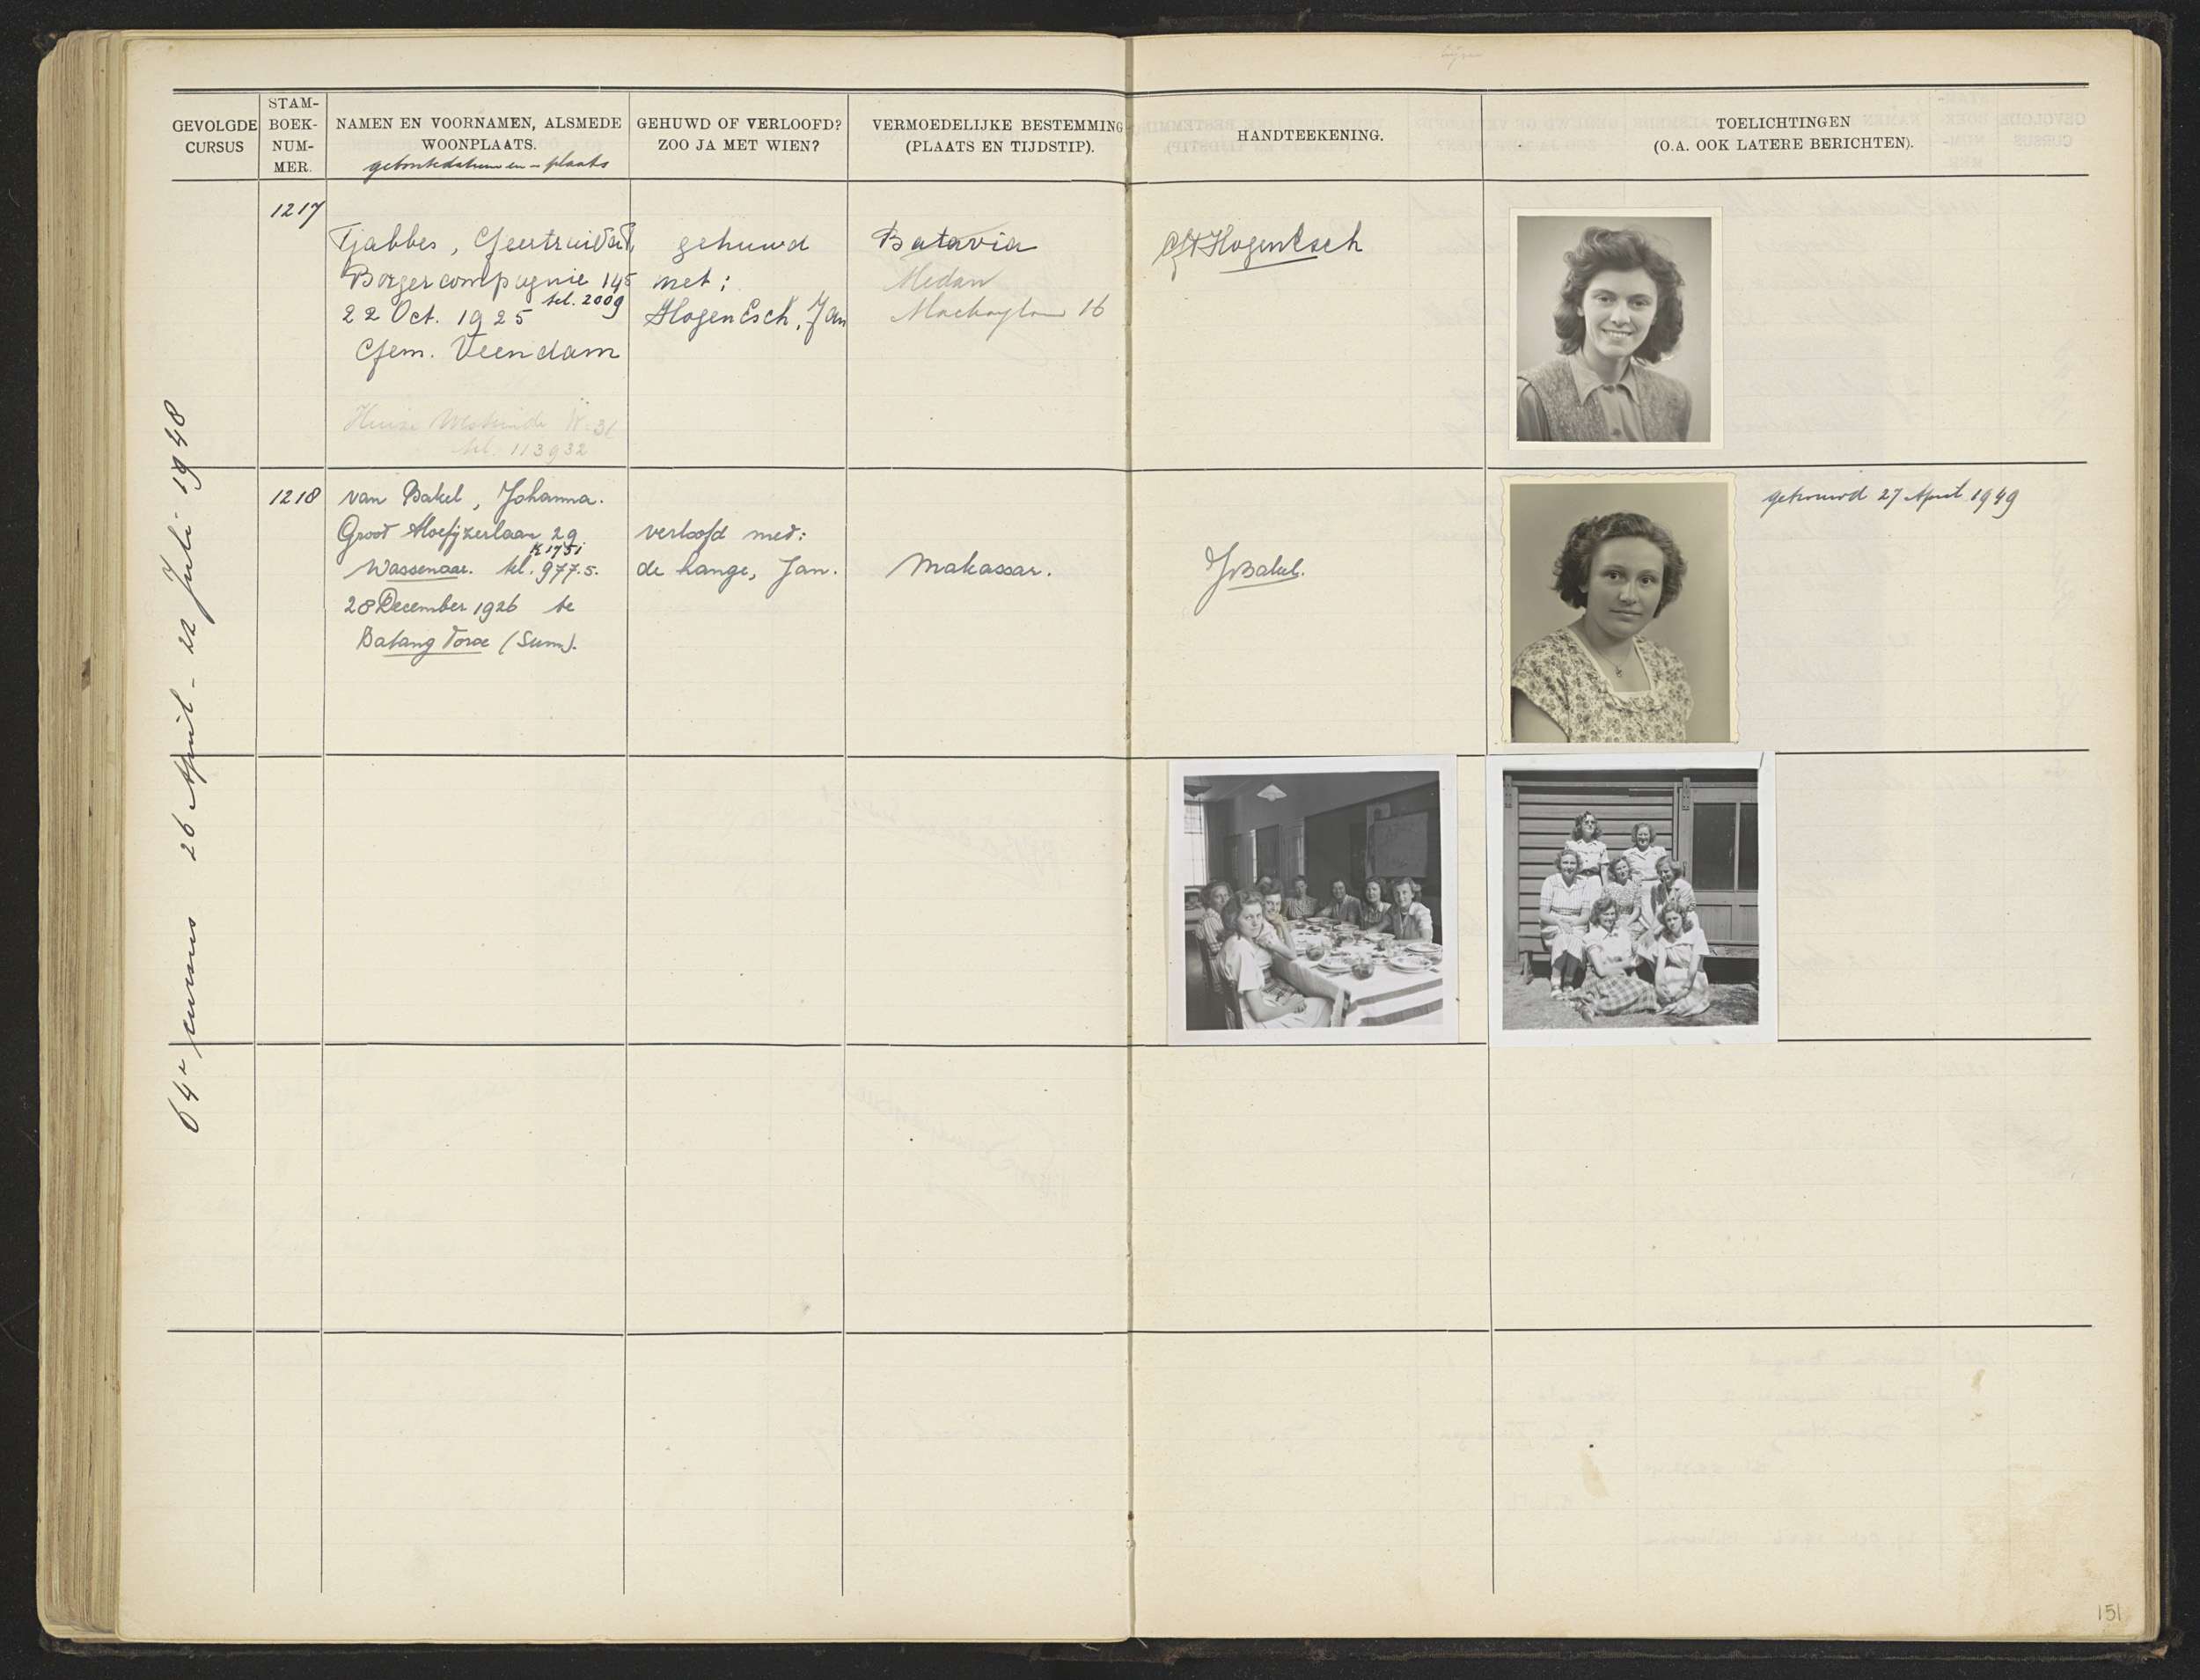 GEVOLGDE
CURSUS
STAM-
BOEK-
NUM-
MER.
NAMEN EN VOORNAMEN, ALSMEDE
WOONPLAATS.
geboortedatum en - plaats
GEHUWD OF VERLOOFD?
ZOO JA MET WIEN?
VERMOEDELIJKE BESTEMMING
(PLAATS EN TIJDSTIP).
HANDTEEKENING.
TOELICHTINGEN
(O.A. OOK LATERE BERICHTEN).
64e cursus 26 April - 22 Juli 1948
1217
Tjabbes, Geertruida
Borgercompagnie 145
tel. 2009
22 Oct. 1925
Gem. Veendam
tel. 113932
gehuwd
met:
Hogen Esch, Jan
Batavia
Medan
16
Hogen Esch
1218
van Bakel, Johanna.
Groot Hoefijzerlaan 29
K 1751
Wassenaar. tel. 977.5.
28 December 1926 te
Batang Toroe (Sum).
verloofd met:
de Lange, Jan.
Makassar.
JvBakel.
getrouwd 27 April 1949
151